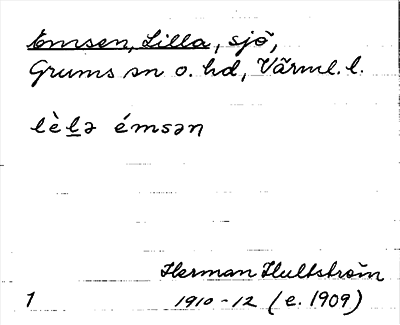 Emsen, Lilla, sjö,
Grums sn o. hd, Värml. l.
lèl̲ə émsən
Herman Hultström
1910-12 (e. 1909)
1